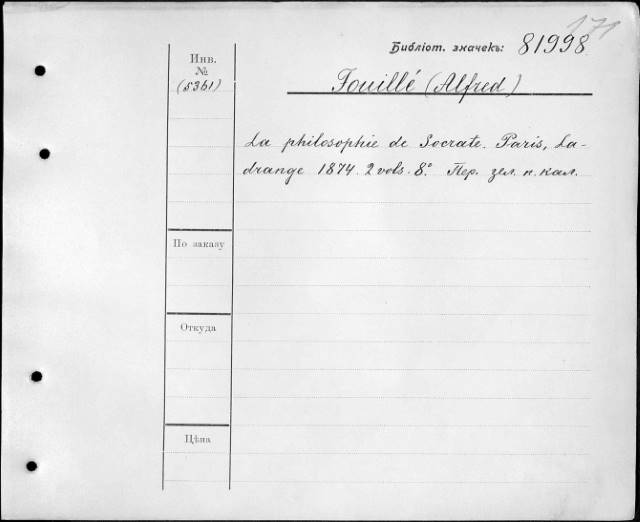 171
Библіот. значекъ: 81998
Инв.
№
(5361)
Fouillé (Alfred)
La philosophie de Socrate. Paris, La-
drange 1874. 2 vols. 8.° Пер. зел. п. кал.
По заказу
Откуда
Цѣна